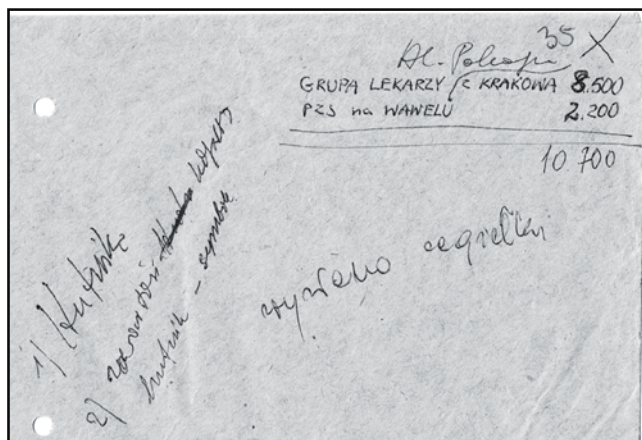 35 X
Al. Pokoju
GRUPA LEKARZY z KRAKOWA 8.500
PZS na WAWELU 2.200
10 700
wysłano cegiełki
1) Hutnik
2)
hutnik – symbol